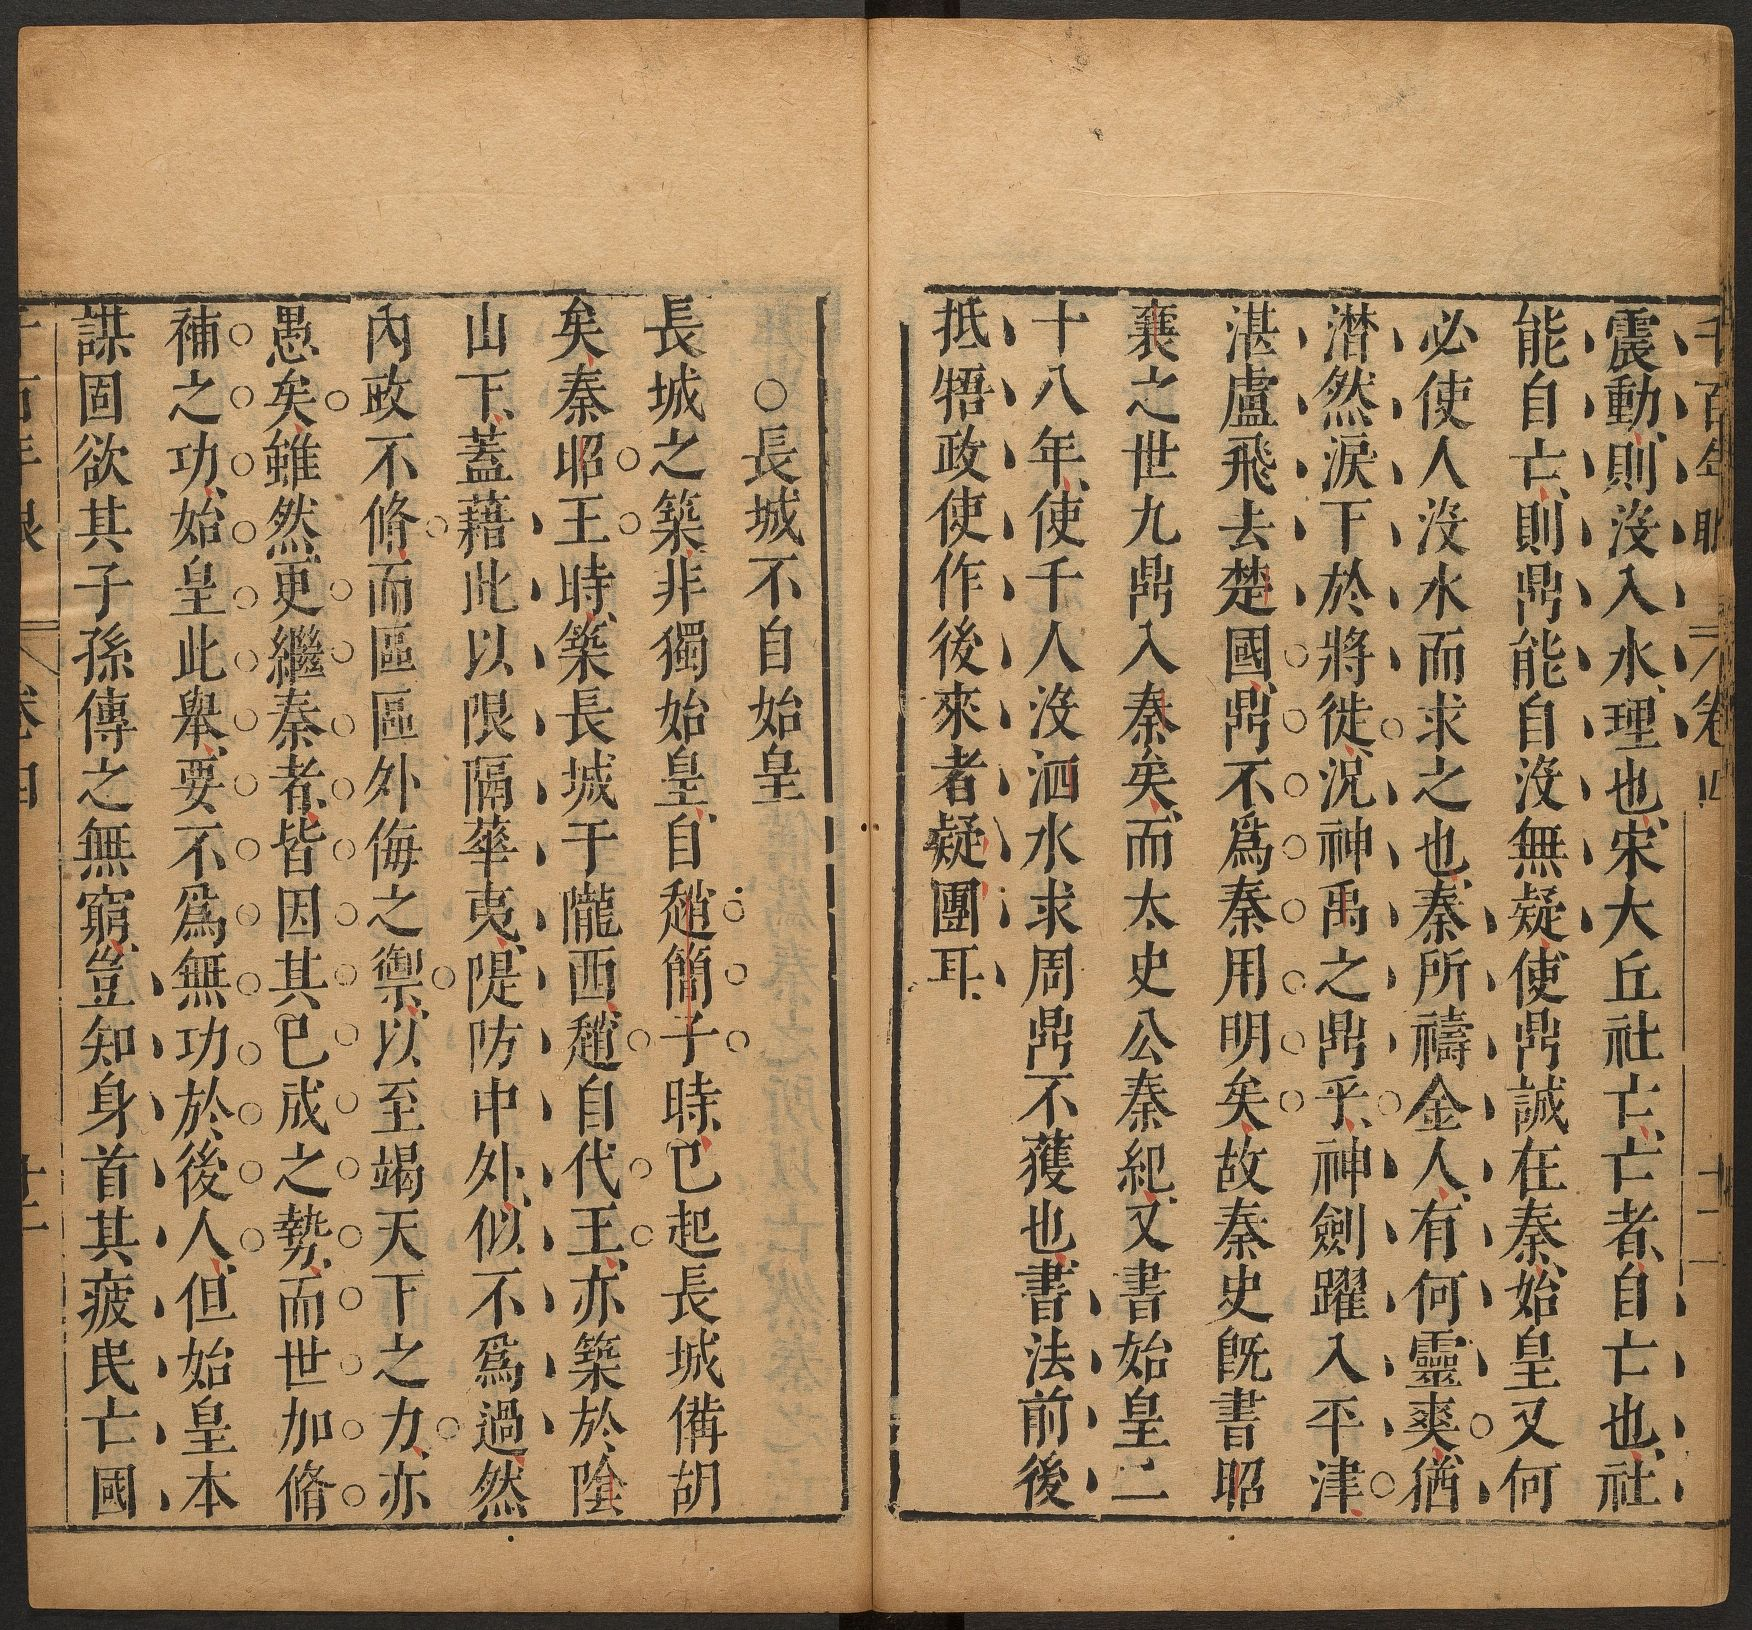 千百年眼 卷四 十二
震動則沒入水理也宋大丘社亡亡者自亡也社
能自亡則鼎能自沒無疑使鼎誠在秦始皇又何
必使人沒水而求之也秦所禱金人有何靈爽猶
潸然淚下於將徙況神禹之鼎乎神劍躍入平津
湛盧飛去楚國鼎不爲秦用明矣故秦史旣書昭
襄之世九鼎入秦矣而太史公秦紀又書始皇二
十八年使千人沒泗水求周鼎不獲也書法前後
抵牾政使作後來者疑團耳
○長城不自始皇
長城之築非獨始皇自趙簡子時已起長城備胡
矣秦昭王時築長城于隴西趙自代王亦築於陰
山下蓋藉此以限隔華夷隄防中外似不爲過然
內政不脩而區區外侮之禦以至竭天下之力亦
愚矣雖然更繼秦者皆因其已成之勢而世加脩
補之功始皇此舉要不爲無功於後人但始皇本
謀固欲其子孫傳之無窮豈知身首其疲民亡國
千百年眼 卷四 廿二